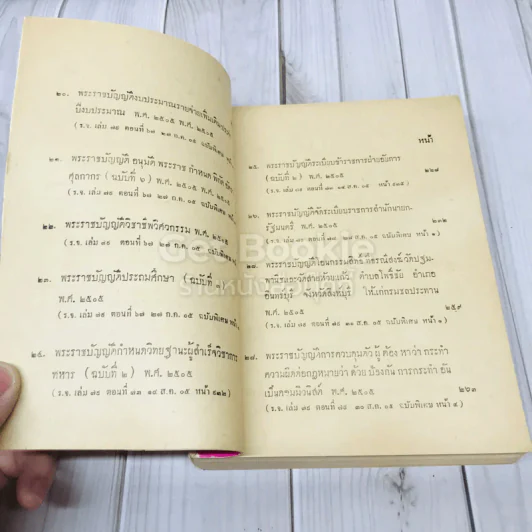 ๒๐. พระราชบัญญัติงบประมาณรายจ่ายเพิ่มเติม
ปีงบประมาณ พ.ศ. ๒๕๐๕ พ.ศ. ๒๕๐๕
(ร.จ. เล่ม ๗๙ ตอนที่ ๖๗ ๒๗ ก.ค. ๐๕ ฉบับพิเศษ
๒๑. พระราชบัญญัติ อนุมัติ พระราช กำหนด พิกัด
ศุลกากร (ฉบับที่ ๖) พ.ศ. ๒๕๐๕ พ.ศ. ๒๕๐๕
(ร.จ. เล่ม ๗๙ ตอนที่ ๖๗ ๒๗ ก.ค. ๐๕ ฉบับพิเศษ
๒๒. พระราชบัญญัติวิชาชีพวิศวกรรม พ.ศ. ๒๕๐๕
(ร.จ. เล่ม ๗๙ ตอนที่ ๖๗ ๒๗ ก.ค. ๐๕ ฉบับพิเศษ
๒๓. พระราชบัญญัติประถมศึกษา (ฉบับที่
พ.ศ. ๒๕๐๕
(ร.จ. เล่ม ๗๙ ตอนที่ ๖๗ ๒๗ ก.ค. ๐๕ ฉบับพิเศษ
๒๔. พระราชบัญญัติกำหนดวิทยฐานะผู้สำเร็จวิชาการ
ทหาร (ฉบับที่ ๒) พ.ศ. ๒๕๐๕
(ร.จ. เล่ม ๗๙ ตอนที่ ๗๓ ๑๔ ส.ค. ๐๕ หน้า
หน้า
๒๕. พระราชบัญญัติระเบียบข้าราชการฝ่ายอัยการ
(ฉบับที่ ๒) พ.ศ. ๒๕๐๕
(ร.จ. เล่ม ๗๙ ตอนที่ ๗๓ ๑๔ ส.ค. ๐๕ หน้า
๒๖. พระราชบัญญัติจัดระเบียบราชการสำนักนายก-
รัฐมนตรี พ.ศ. ๒๕๐๕ ๒๓๒
(ร.จ. เล่ม ๗๙ ตอนที่ ๒๐๕ ฉบับพิเศษ หน้า ๑)
Get Bookie
ร้านหนังสือเก็ท
พระราชบัญญัติโอนกรรมสิทธิ์
ตำบลโพธิ์ชัย อำเภอ
อินทร์บุรี จังหวัดสิงห์บุรี ให้แก่กรมชลประทาน
พ.ศ. ๒๕๐๕ ๒๕๙
(ร.จ. เล่ม ๗๙ ตอนที่ ๗๙ ๓๑ ส.ค. ๐๕ ฉบับพิเศษ หน้า ๑)
พระราชบัญญัติการควบคุมตัว ผู้ ต้อง หา ว่า กระทำ
ความผิดต่อกฎหมายว่า ด้วย ป้องกัน การกระทำ อัน
เป็นคอมมิวนิสต์ พ.ศ. ๒๕๐๕ ๒๖๓
(ร.จ. เล่ม ๗๙ ตอนที่ ฉบับพิเศษ หน้า ๔)